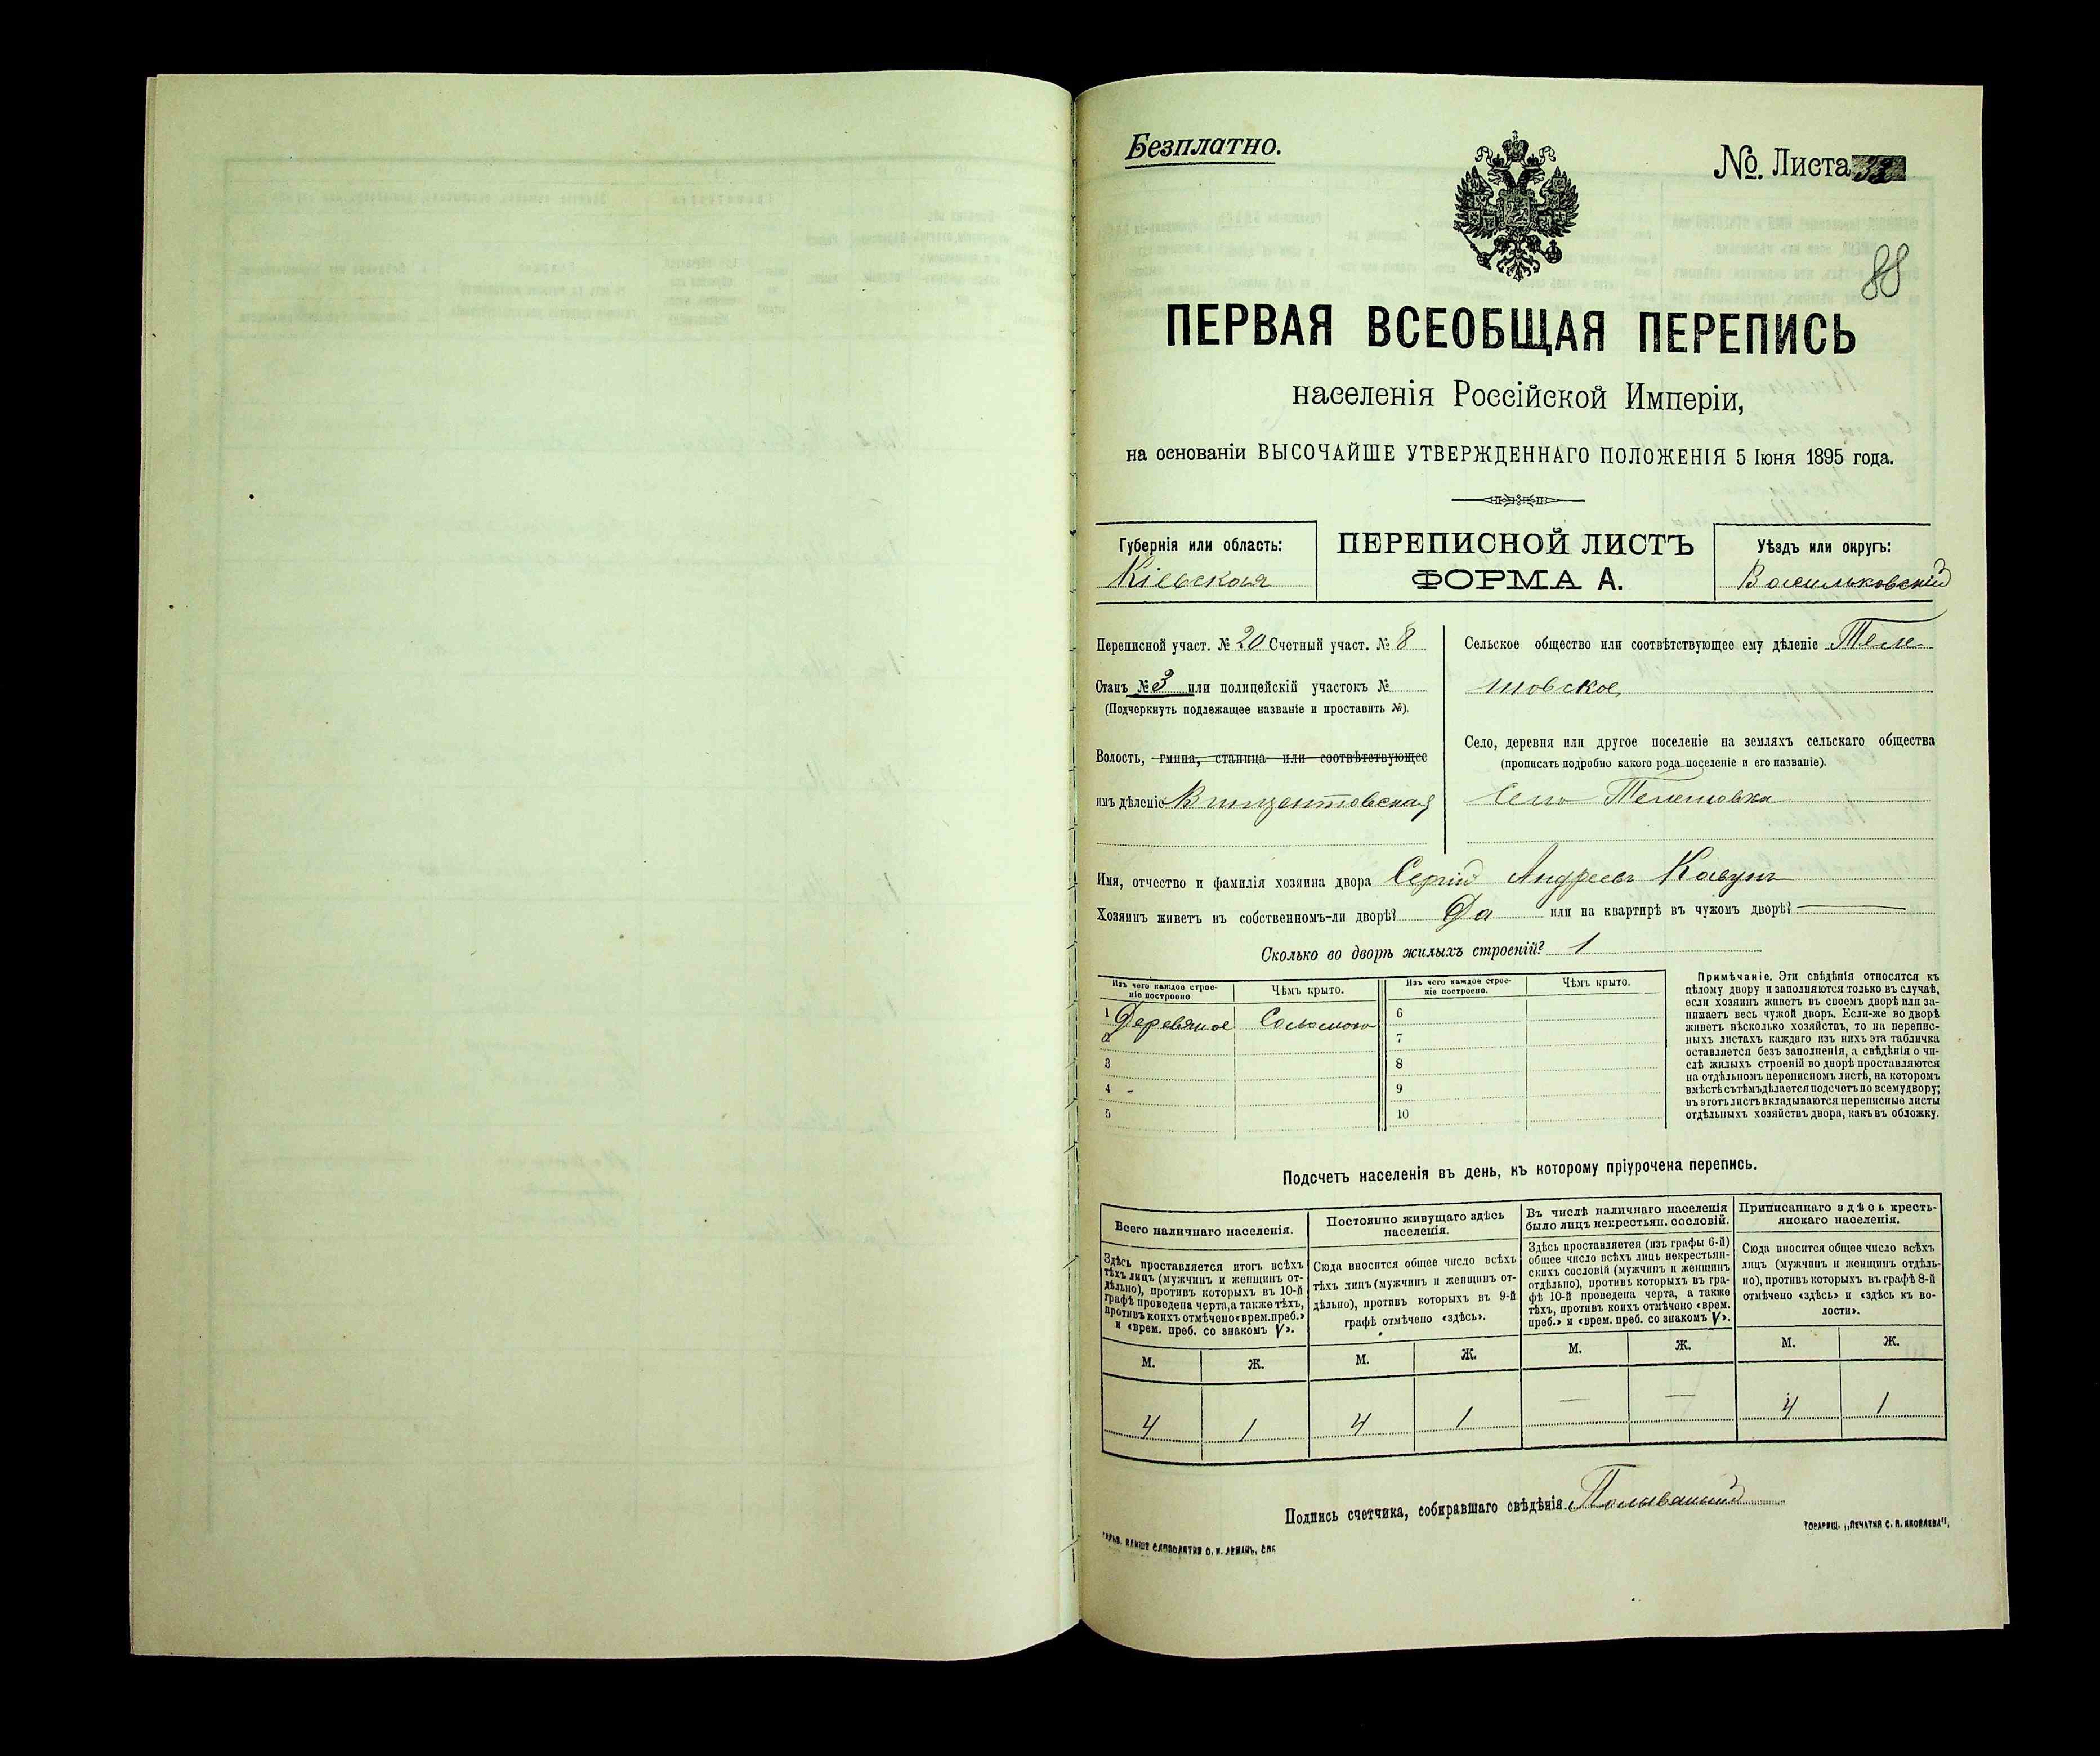 Безплатно.
№ Листа 33
88
ПЕРВАЯ ВСЕОБЩАЯ ПЕРЕПИСЬ
населенія Россійской Имперіи,
на основаніи ВЫСОЧАЙШЕ УТВЕРЖДЕННАГО ПОЛОЖЕНІЯ 5 Іюня 1895 года.
Губернія или область:
Кіевская
ПЕРЕПИСНОЙ ЛИСТЪ
ФОРМА А.
Уѣздъ или округъ:
Васильковскій
Переписной участ. № 20 Счетный участ. № 8
Станъ № 3 или полицейскій участокъ №
(Подчеркнуть подлежащее названіе и проставить №).
Волость, гмина, станица или соотвѣтствующее
имъ дѣленіе Винцентовская
Сельское общество или соотвѣтствующее ему дѣленіе Теле-
шовское
Село, деревня или другое поселеніе на земляхъ сельскаго общества
(прописать подробно какого рода поселеніе и его названіе).
Село Телешовка
Имя, отчество и фамилія хозяина двора Сергій Андреевъ Кавунъ
Хозяинъ живетъ въ собственномъ-ли дворѣ? Да или на квартирѣ въ чужомъ дворѣ?
Сколько во дворѣ жилыхъ строеній? 1
Изъ чего каждое строе-
ніе построено
Чѣмъ крыто.
Изъ чего каждое строе-
ніе построено.
Чѣмъ крыто.
1 Деревяное Соломою 6
2 7
3 8
4 9
5 10
Примѣчаніе. Эти свѣдѣнія относятся къ
цѣлому двору и заполняются только въ случаѣ,
если хозяинъ живетъ въ своемъ дворѣ или за-
нимаетъ весь чужой дворъ. Если-же во дворѣ
живетъ нѣсколько хозяйствъ, то на перепис-
ныхъ листахъ каждаго изъ нихъ эта табличка
оставляется безъ заполненія, а свѣдѣнія о чи-
слѣ жилыхъ строеній во дворѣ проставляются
на отдѣльномъ переписномъ листѣ, на которомъ
вмѣстѣ съ тѣмъ дѣлается подсчетъ по всему двору;
въ этотъ листъ вкладываются переписные листы
отдѣльныхъ хозяйствъ двора, какъ въ обложку.
Подсчетъ населенія въ день, къ которому пріурочена перепись.
Всего наличнаго населенія.
Здѣсь проставляется итогъ всѣхъ
тѣхъ лицъ (мужчинъ и женщинъ от-
дѣльно), противъ которыхъ въ 10-й
графѣ проведена черта, а также тѣхъ,
противъ коихъ отмѣчено «врем. преб.»
и «врем. преб. со знакомъ V».
Постоянно живущаго здѣсь
населенія.
Сюда вносится общее число всѣхъ
тѣхъ лицъ (мужчинъ и женщинъ от-
дѣльно), противъ которыхъ въ 9-й
графѣ отмѣчено «здѣсь».
Въ числѣ наличнаго населенія
было лицъ некрестьян. сословій.
Здѣсь проставляется (изъ графы 6-й)
общее число всѣхъ лицъ некрестьян-
скихъ сословій (мужчинъ и женщинъ
отдѣльно), противъ которыхъ въ гра-
фѣ 10-й проведена черта, а также
тѣхъ, противъ коихъ отмѣчено «врем.
преб.» и «врем. преб. со знакомъ V».
Приписаннаго здѣсь кресть-
янскаго населенія.
Сюда вносится общее число всѣхъ
лицъ (мужчинъ и женщинъ отдѣль-
но), противъ которыхъ въ графѣ 8-й
отмѣчено «здѣсь» и «здѣсь къ во-
лости».
М. Ж. М. Ж. М. Ж. М. Ж.
4 1 4 1 — — 4 1
Подпись счетчика, собиравшаго свѣдѣнія
ТОВАРИЩ. „ПЕЧАТНЯ С. П. ЯКОВЛЕВА“.
СЛОВОЛИТНИ О. И. ЛЕМАНЪ, СПБ